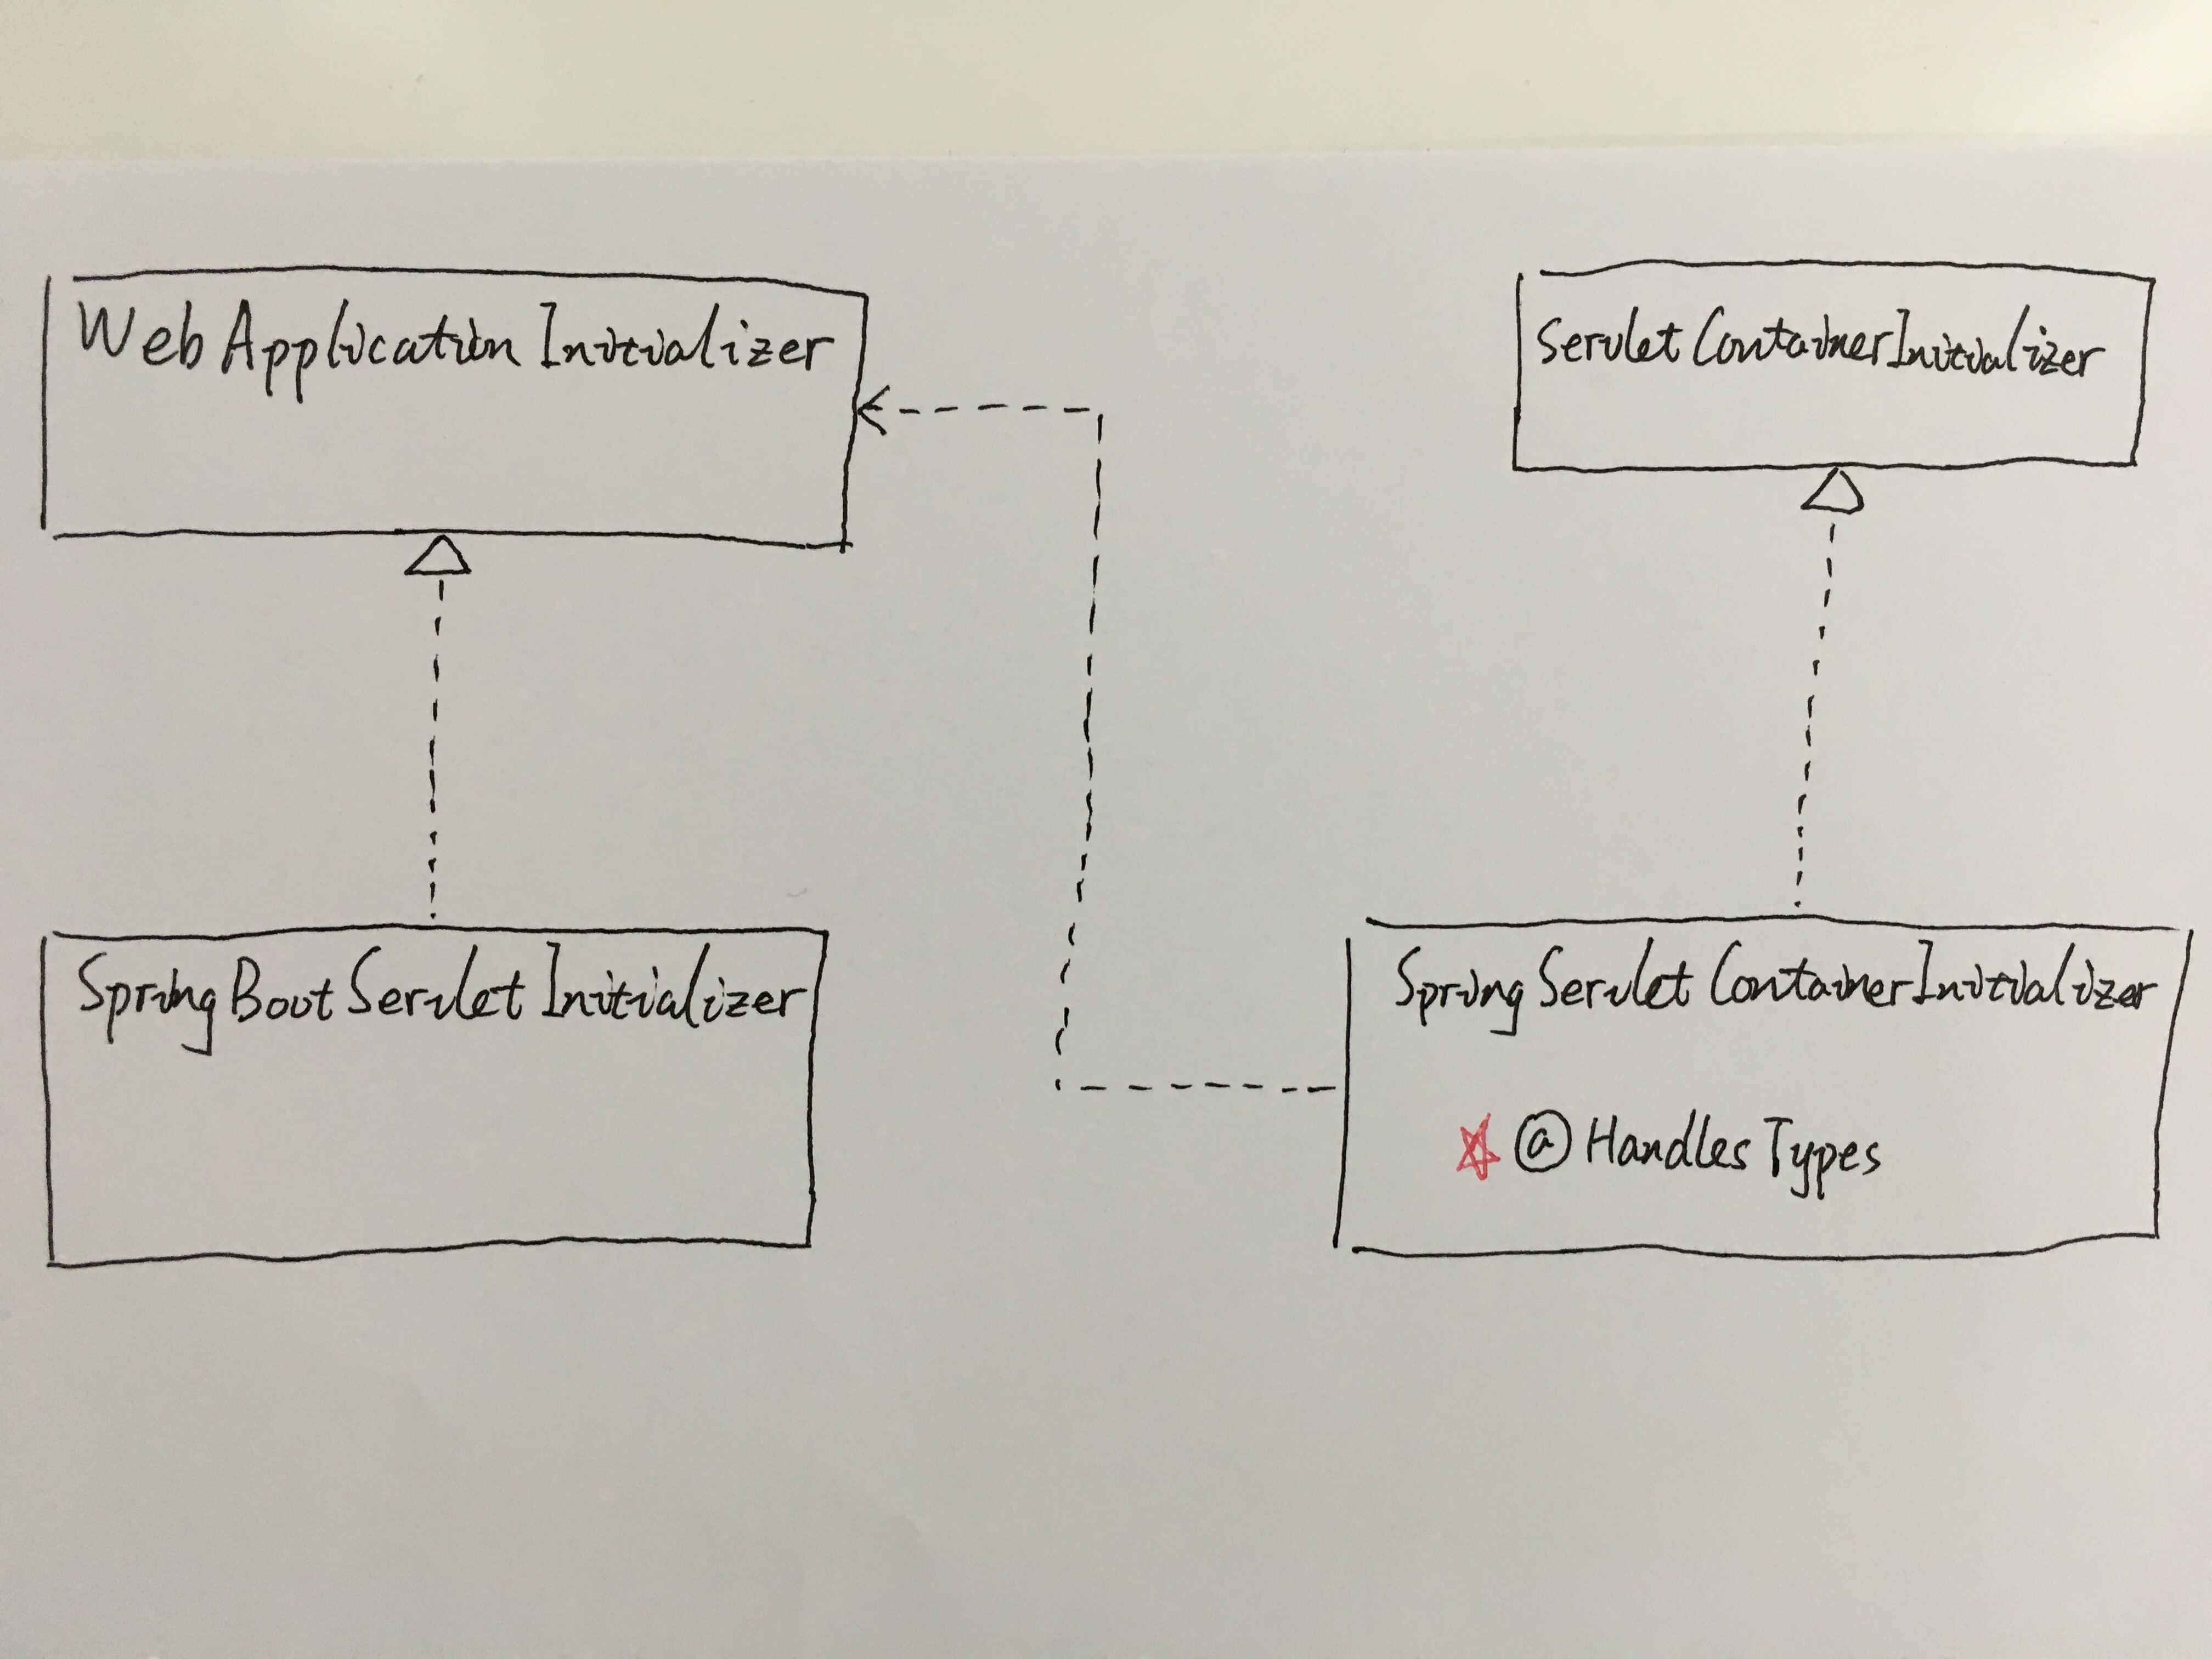 Web Application Initializer
Servlet Container Initializer
Spring Boot Servlet Initializer
Spring Servlet Container Initializer
@ Handles Types